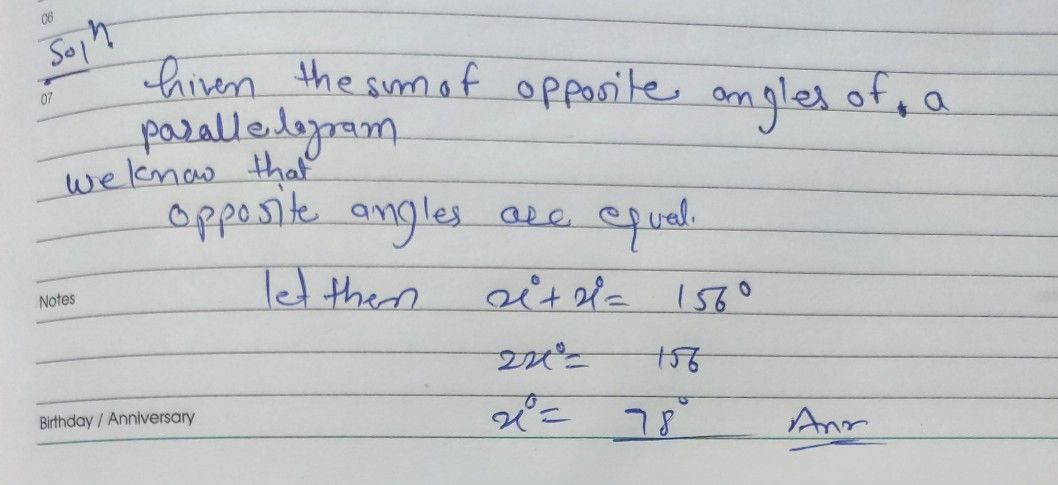 06
Solⁿ
07
Given the sum of opposite angles of a
parallelogram
we know that
opposite angles are equal.
Notes
let then x° + x° = 156°
2x° = 156
Birthday / Anniversary
x° = 78° Ans